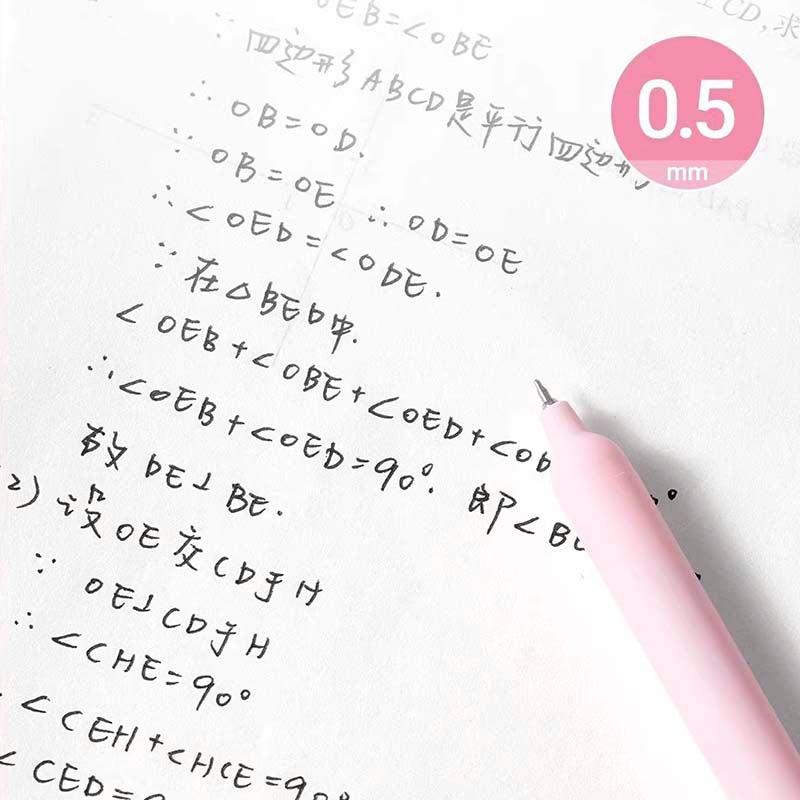 OEB=∠OBE
∵四边形ABCD是平行四边形
∴OB=OD.
∵OB=OE ∴OD=OE
∴∠OED=∠ODE.
∵在△BED中.
∠OEB+∠OBE+∠OED+∠OD
∴∠OEB+∠OED=90°. 即∠BE
故DE⊥BE.
2)设OE交CD于H
∵OE⊥CD于H
∴∠CHE=90°
∠CEH+∠HCE=90°
∠CED=9
⊥CD,求
0.5
mm